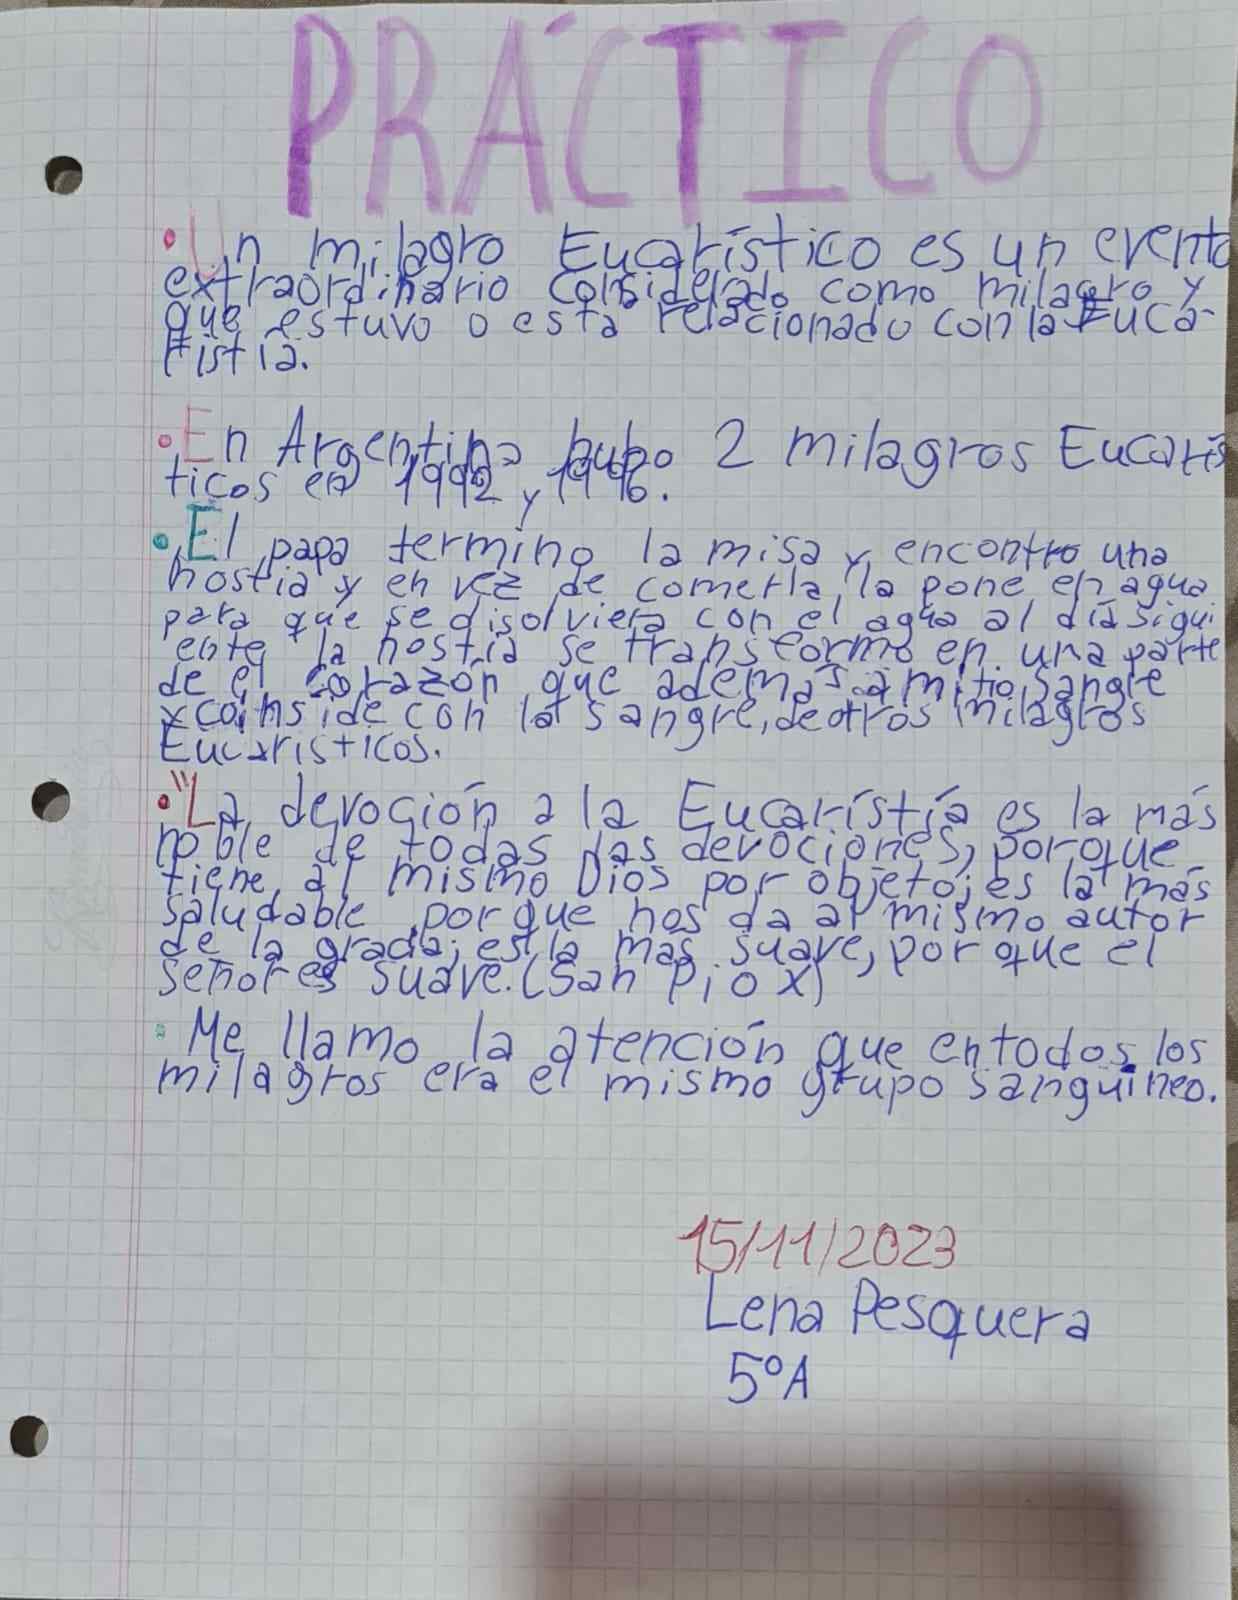 PRÁCTICO
• Un milagro Eucarístico es un evento
extraordinario considerado como milagro y
que estuvo o está relacionado con la Euca-
ristia.
• En Argentina hubo 2 milagros Eucarís
ticos en 1992 y 1996.
• El papa termino la misa y encontro una
hostia y en vez de comerla, la pone en agua
para que se disolviera con el agua al día sigui
ente la hostia se transformo en una parte
de el corazón que además amitio sangre
y coinside con la sangre, de otros milagros
Eucaristicos.
• "La devoción a la Eucarístía es la más
noble de todas las devociones, porque
tiene al mismo Dios por objeto; es la más
saludable porque nos da al mismo autor
de la gracia; es la mas suave, por que el
señor es suave. (San Pio X)
• Me llamo la atención que entodos los
milagros era el mismo grupo sanguíneo.
15/11/2023
Lena Pesquera
5°A